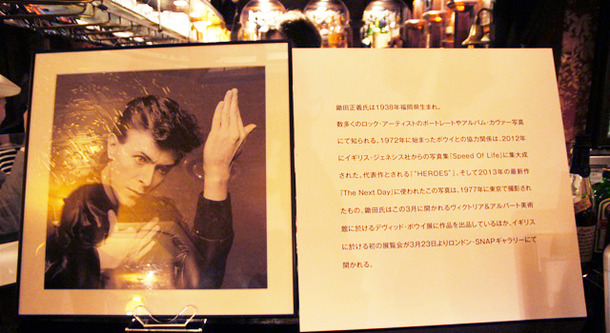 鋤田正義氏は1938年福岡県生まれ。
数多くのロック・アーティストのポートレートやアルバム・カヴァー写真
にて知られる。1972年に始まったボウイとの協力関係は、2012年
にイギリス・ジェネシス社からの写真集「Speed Of Life」に集大成
された。代表作とされる「"HEROES"」、そして2013年の最新作
「The Next Day」に使われたこの写真は、1977年に東京で撮影され
たもの。鋤田氏はこの3月に開かれるヴィクトリア&アルバート美術
館に於けるデヴィッド・ボウイ展に作品を出品しているほか、イギリス
に於ける初の展覧会が3月23日よりロンドン・SNAPギャラリーにて
開かれる。